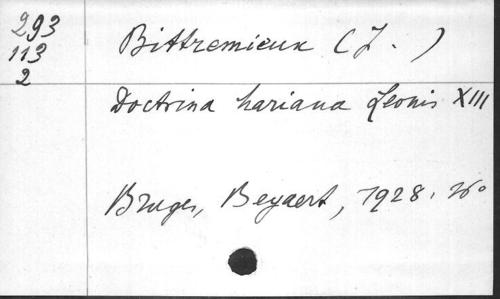 293
113
2
Bittremieux (J.)
Doctrina Mariana Leonis XIII
Bruges, Beyaert, 1928. in 8°